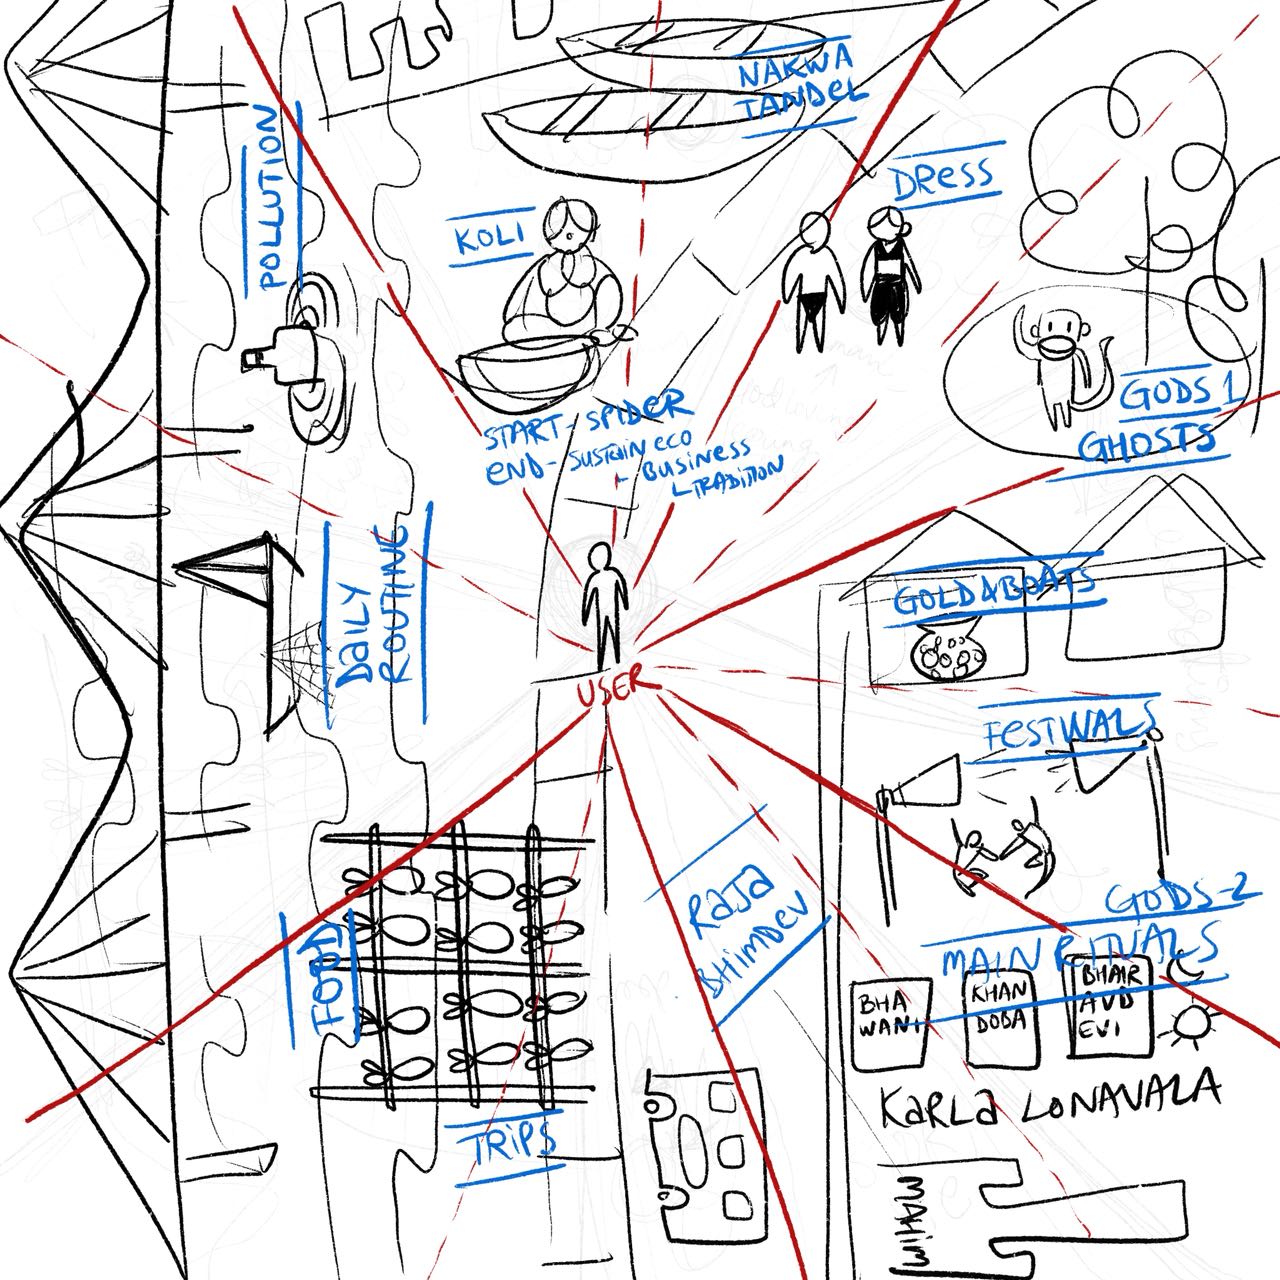 NAKWA
TANDEL
POLLUTION
DRESS
KOLI
GODS 1
GHOSTS
START - SPIDER
END - SUSTAIN ECO
BUSINESS
TRADITION
DAILY
ROUTINE
GOLD & BOATS
USER
FESTIVALS
RAJA
BHIMDEV
GODS-2
MAIN RITUALS
FOOD
BHA
WANI
KHAN
DOBA
BHAIR
AVD
EVI
KARLA LONAVALA
TRIPS
MAHIM